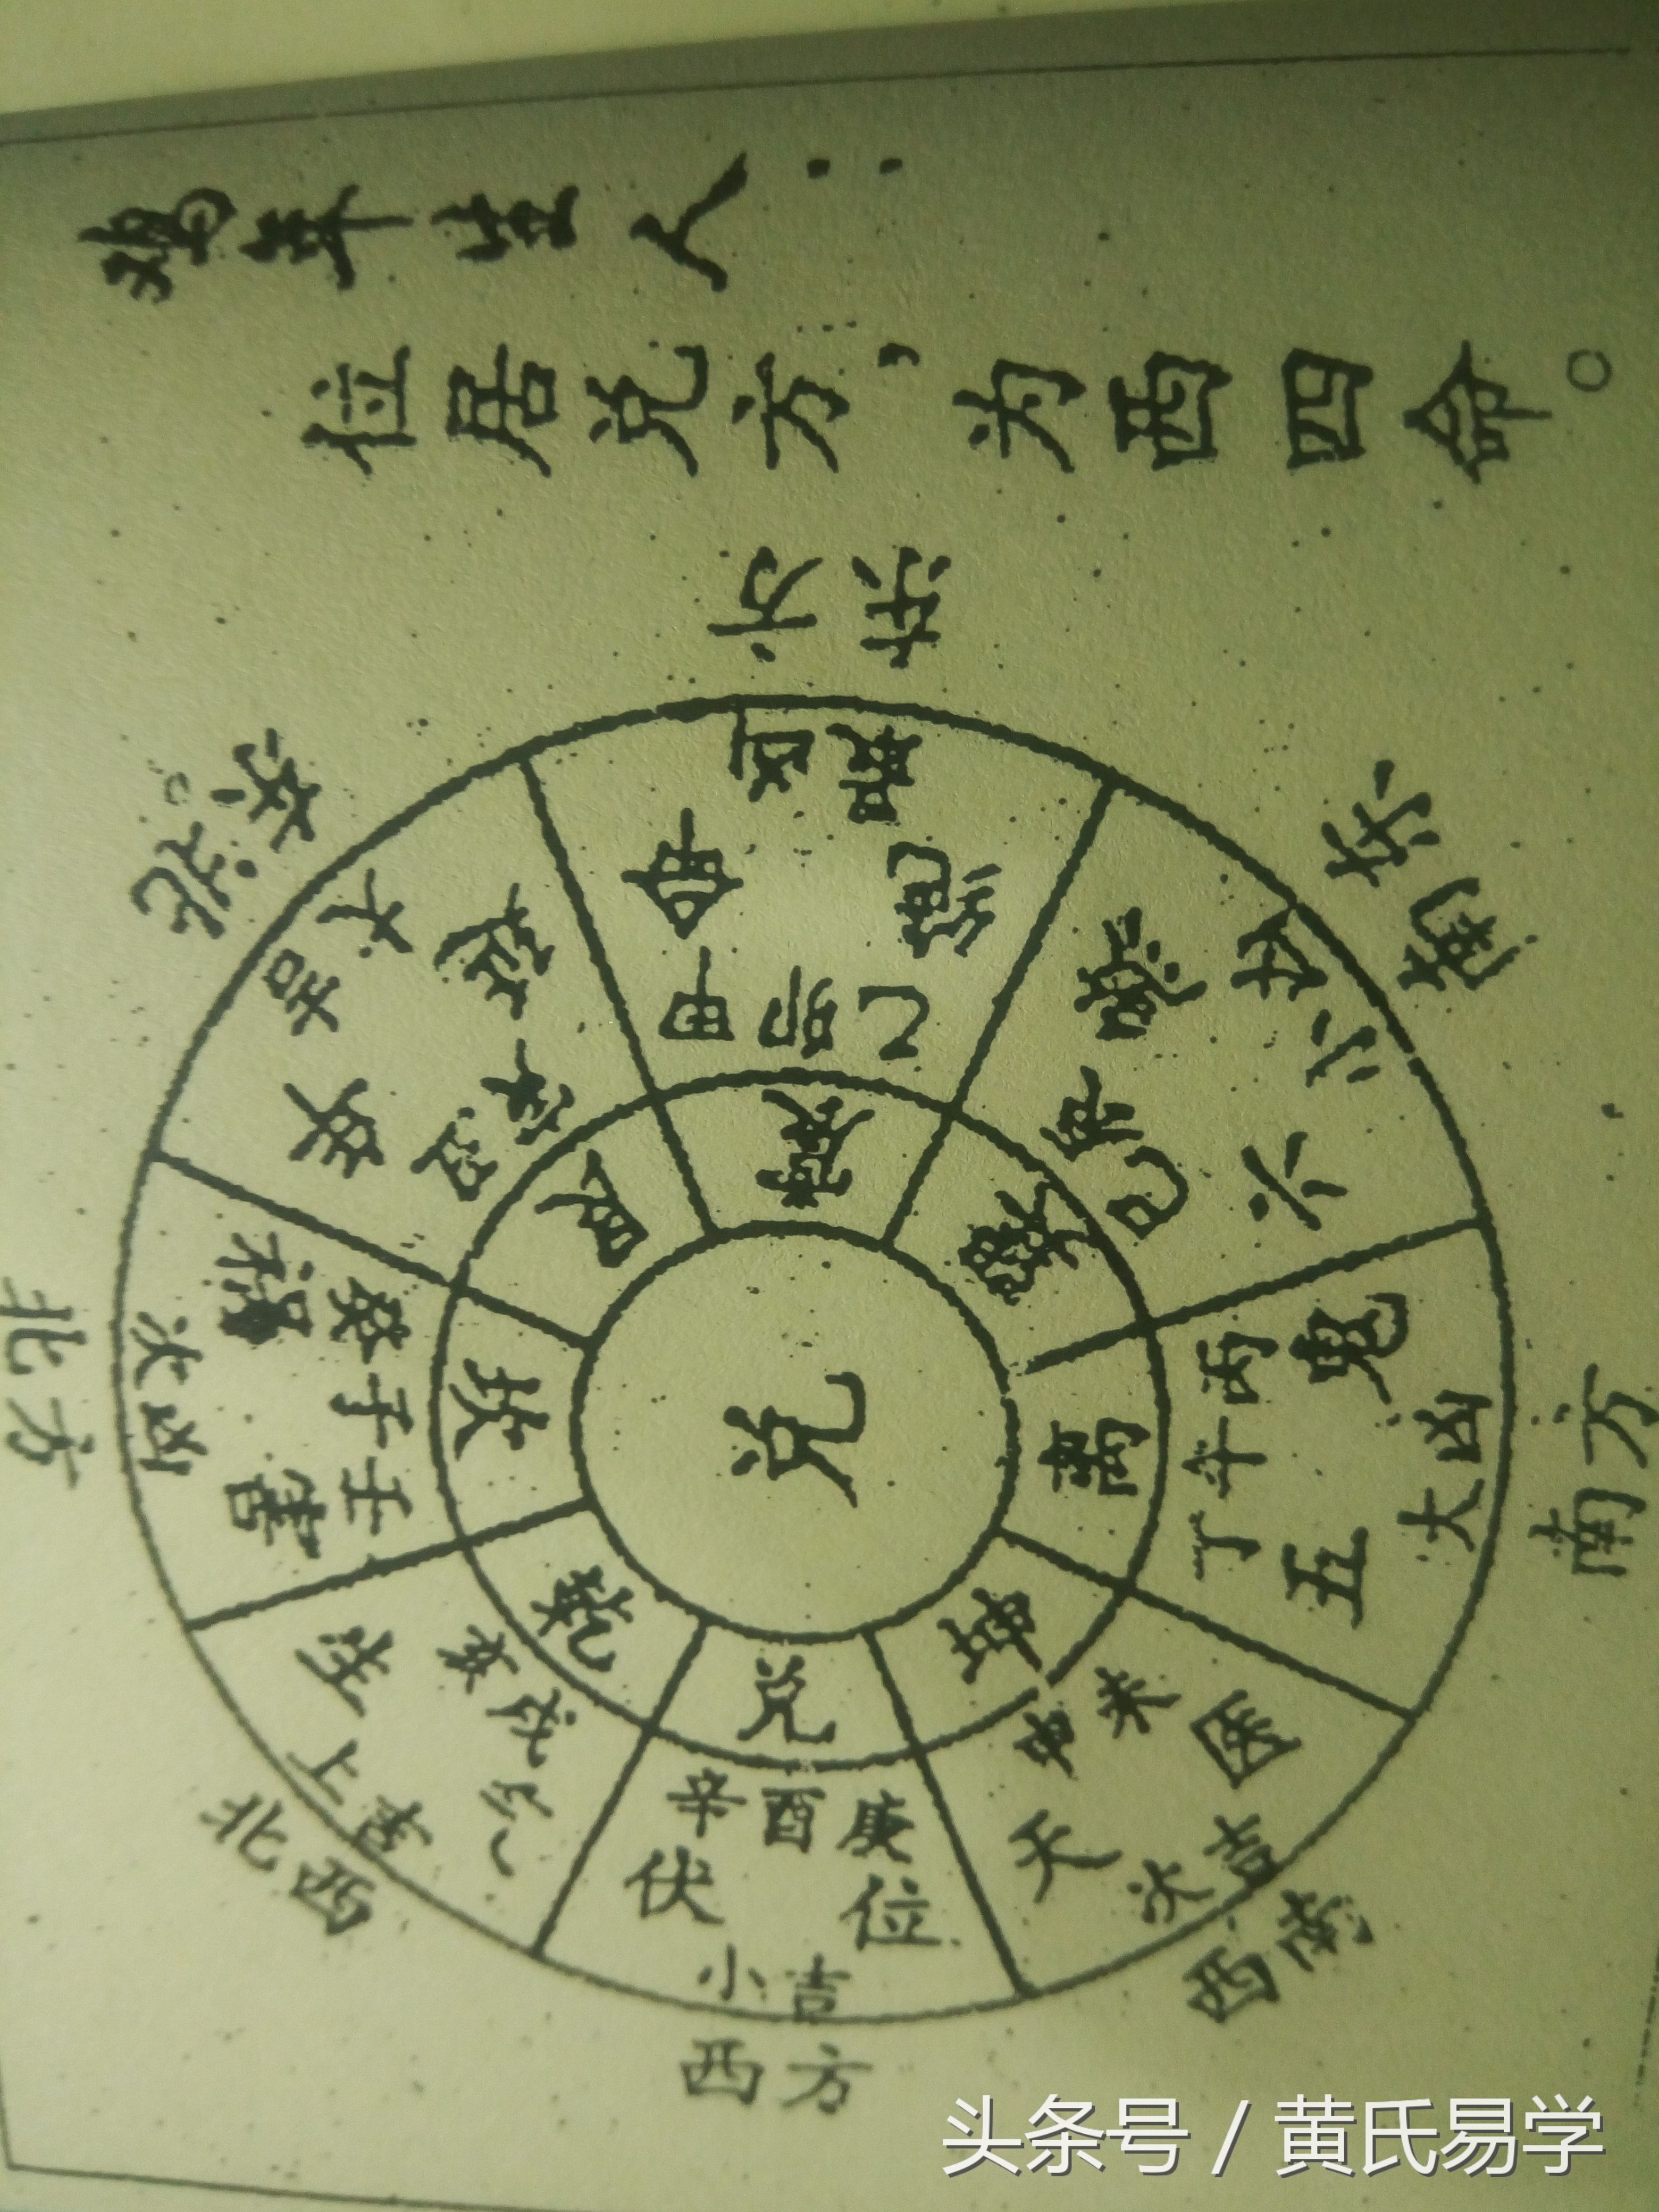 鷄年生人：
位居兑方，为西四命。
东方
最凶
绝命
甲卯乙
震
东南
小凶
六煞
辰巳
巽
南方
大凶
五鬼
丙午丁
离
西南
次吉
天医
未申
坤
西方
小吉
伏位
辛酉庚
兑
西北
上吉
生气
戌亥
乾
北方
次凶
祸害
壬子癸
坎
东北
大吉
延年
丑寅
艮
兑
头条号 / 黄氏易学